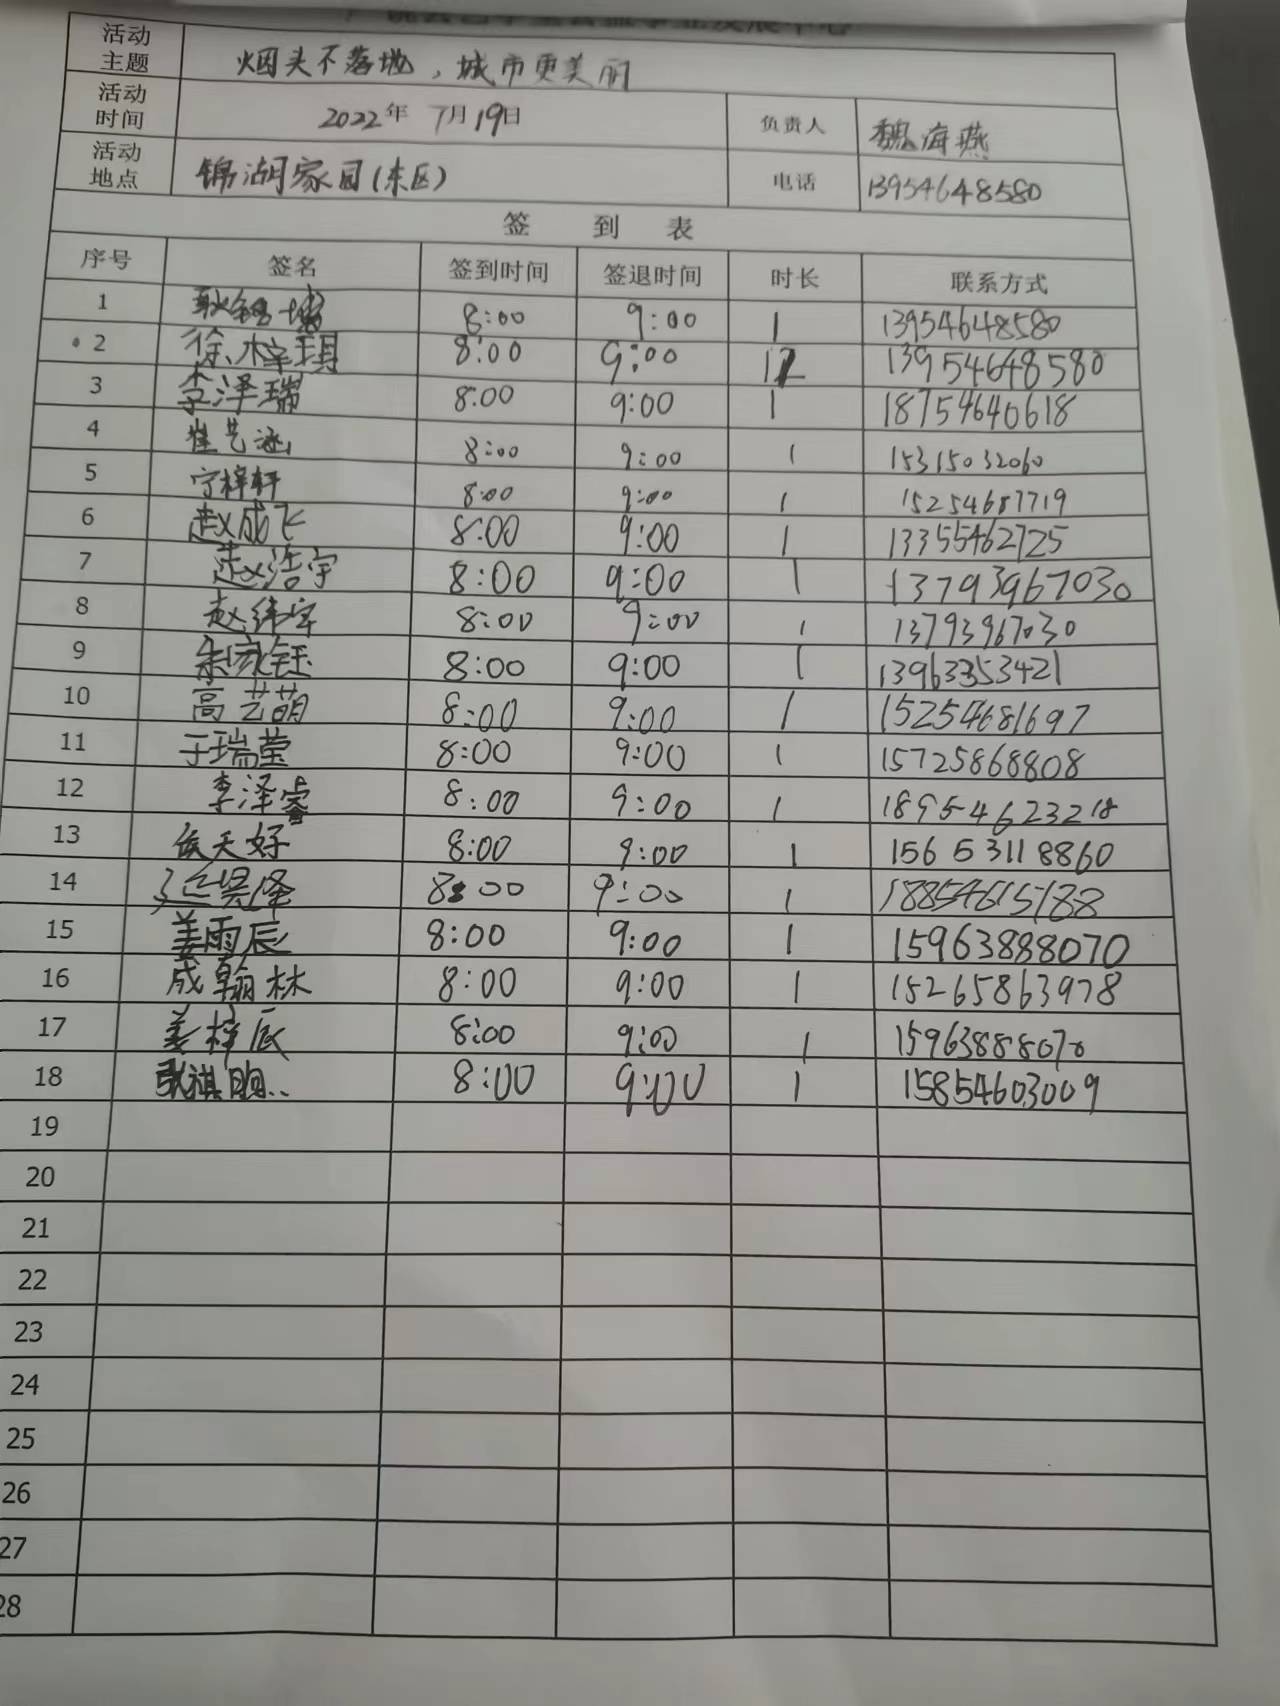 活动主题 烟头不落地，城市更美丽
活动时间 2022年 7月19日 负责人 魏海燕
活动地点 锦湖家园(东区) 电话 13954648580
签 到 表
序号 签名 签到时间 签退时间 时长 联系方式
1 8:00 9:00 1 13954648580
2 徐梓琪 8:00 9:00 13954648580
3 李泽瑞 8:00 9:00 1 18754640618
4 崔艺涵 8:00 9:00 1 15315032060
5 宁梓轩 8:00 9:00 1 15254687719
6 赵成飞 8:00 9:00 1 13355462725
7 赵浩宇 8:00 9:00 1 13793967030
8 赵纬宇 8:00 9:00 1 13793967030
9 朱家钰 8:00 9:00 1 13963353421
10 高艺萌 8:00 9:00 1 15254681697
11 于瑞莹 8:00 9:00 1 15725868808
12 李泽睿 8:00 9:00 1 18954623218
13 侯天好 8:00 9:00 1 15653118860
14 延昊泽 8:00 9:00 1 18854615188
15 姜雨辰 8:00 9:00 1 15963888070
16 成翰林 8:00 9:00 1 15265863978
17 姜梓辰 8:00 9:00 1 15963888070
18 8:00 9:00 1 15854603009
19
20
21
22
23
24
25
26
27
28